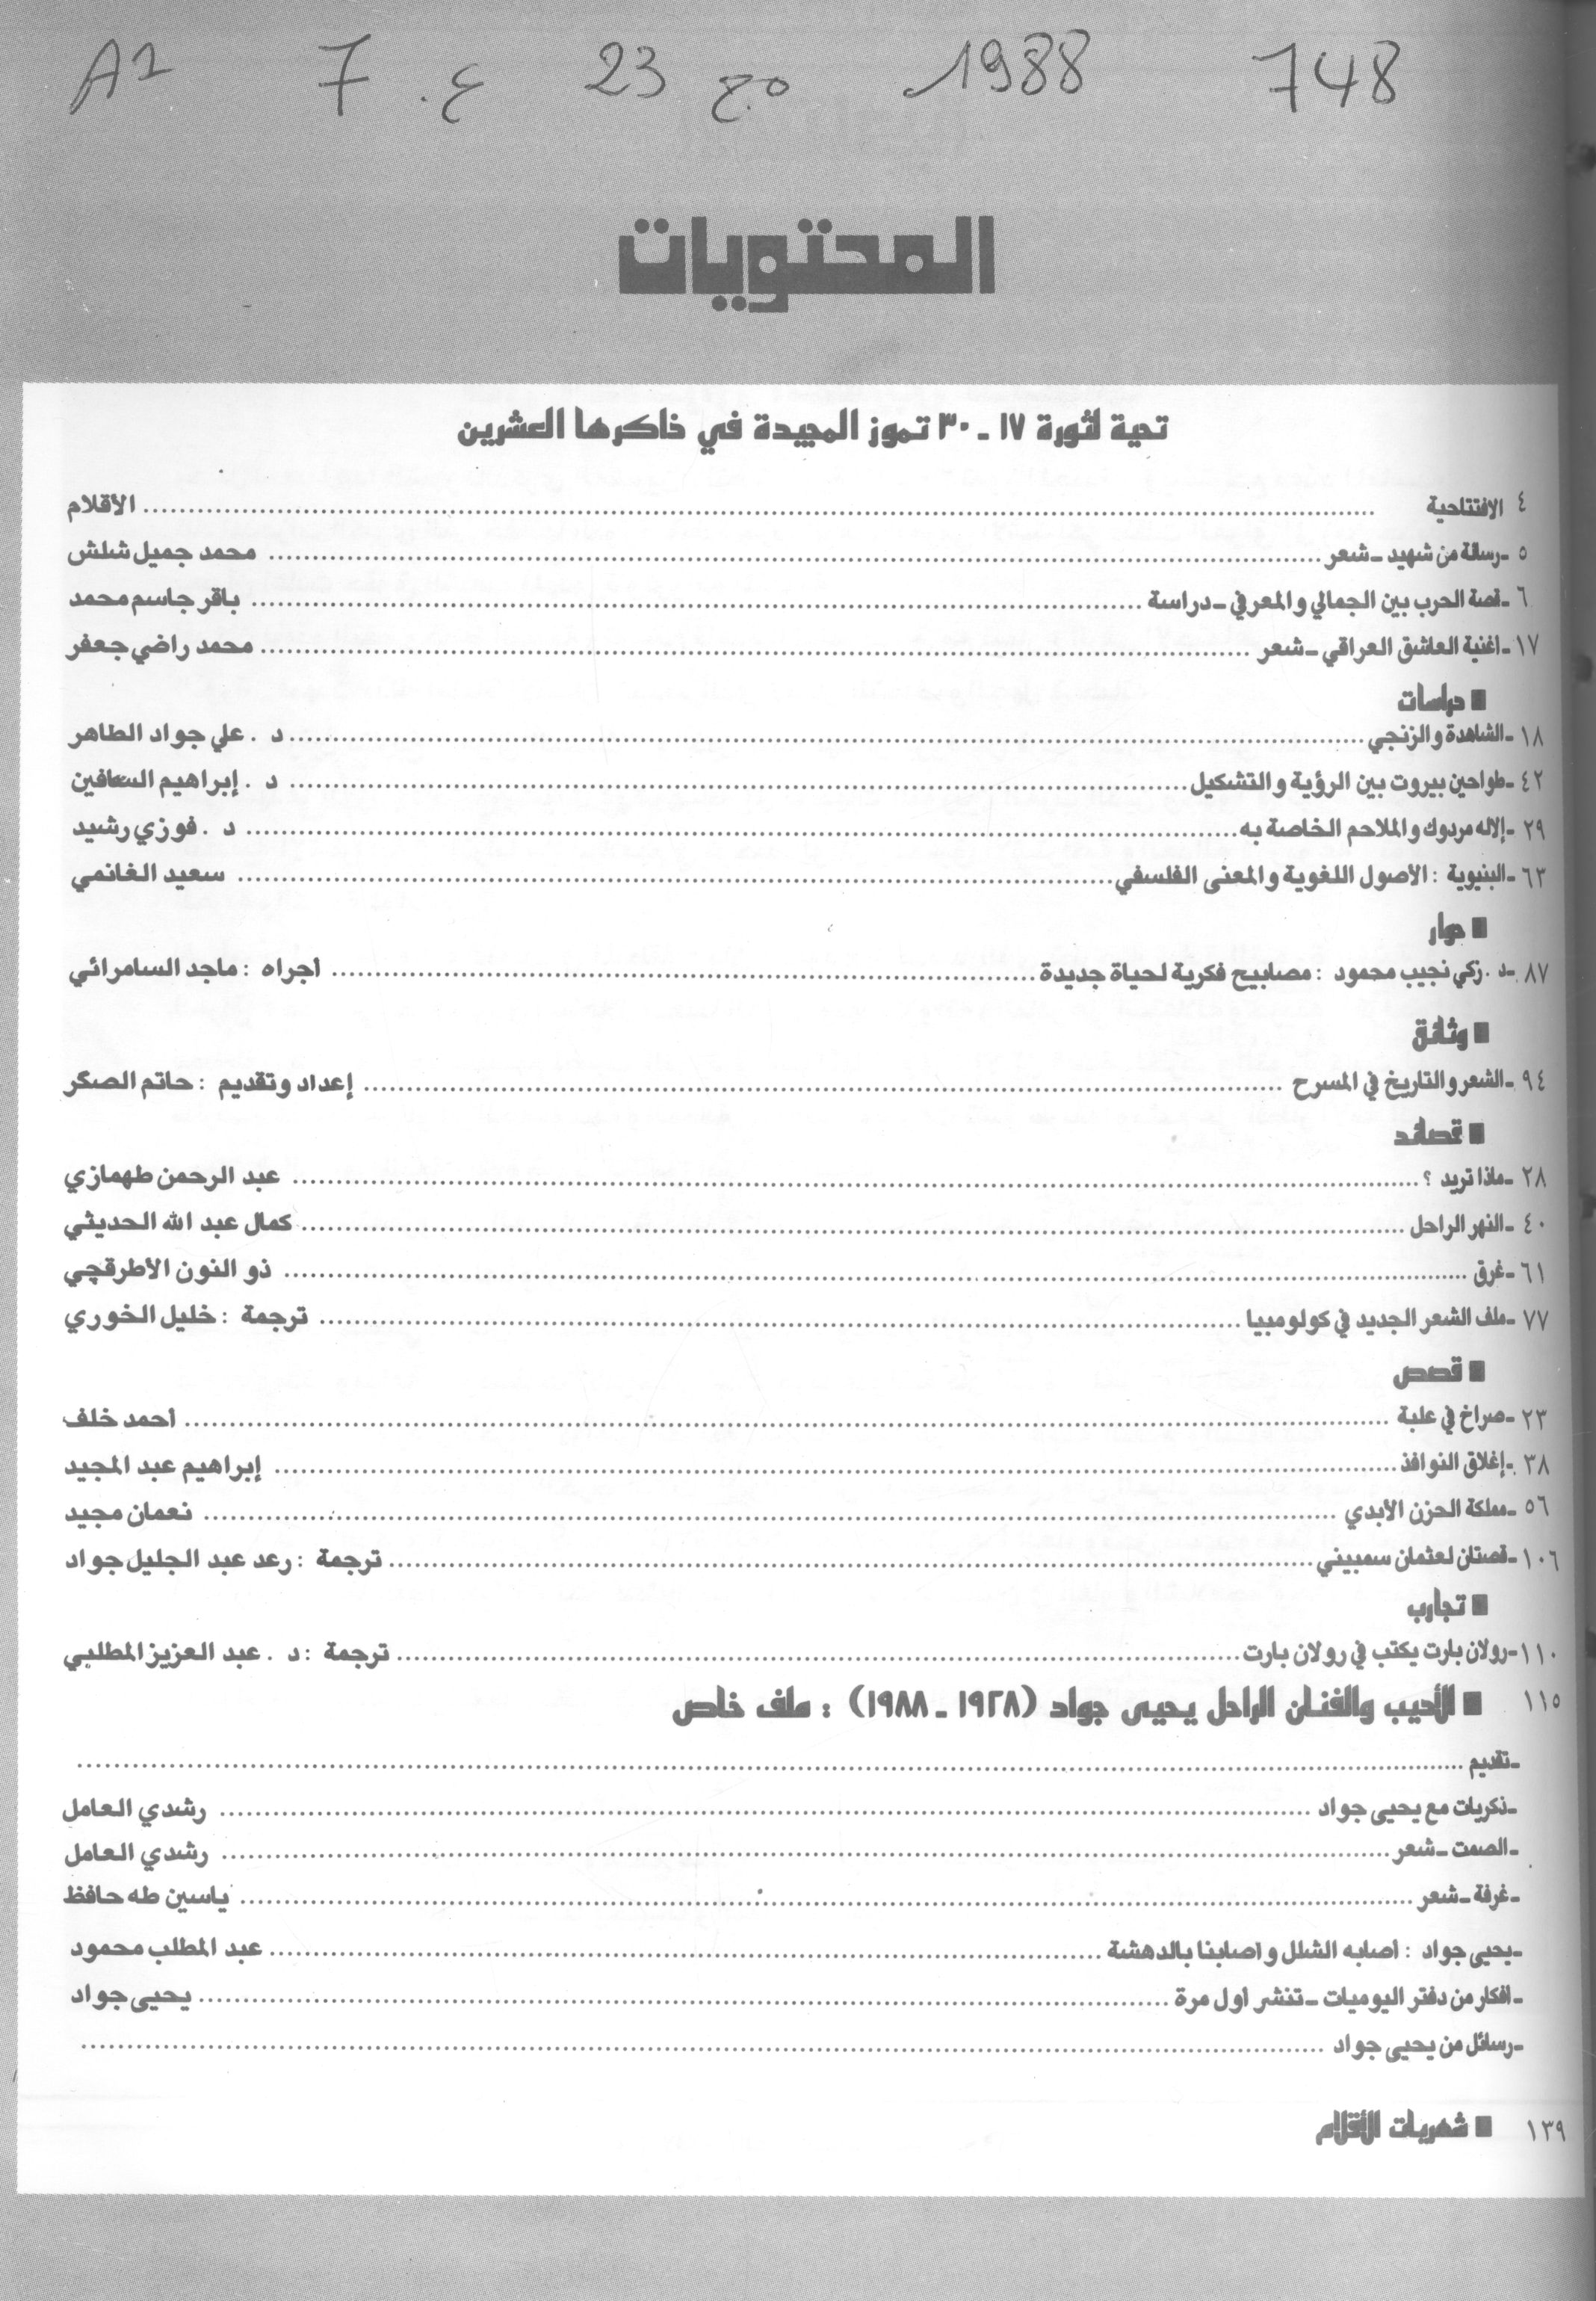 748 1988 مج 23 ع. 7 A2
المحتويات
تحية لثورة ١٧ ـ ٣٠ تموز المجيدة في ذاكرها العشرين
٤ الافتتاحية ........ الأقلام
٥ ـ رسالة من شهيد ـ شعر ........ محمد جميل شلش
٦ ـ قصة الحرب بين الجمالي والمعرفي ـ دراسة ........ باقر جاسم محمد
١٧ ـ اغنية العاشق العراقي ـ شعر ........ محمد راضي جعفر
■ دراسات
١٨ ـ الشاهدة والزنجي ........ د . علي جواد الطاهر
٤٢ ـ طواحين بيروت بين الرؤية والتشكيل ........ د . إبراهيم السعافين
٢٩ ـ إلاله مردوك والملاحم الخاصة به ........ د . فوزي رشيد
٦٣ ـ البنيوية : الأصول اللغوية والمعنى الفلسفي ........ سعيد الغانمي
■ حوار
٨٧ ـ د . زكي نجيب محمود : مصابيح فكرية لحياة جديدة ........ أجراه : ماجد السامرائي
■ وثائق
٩٤ ـ الشعر والتاريخ في المسرح ........ إعداد وتقديم : حاتم الصكر
■ قصائد
٢٨ ـ ماذا تريد ؟ ........ عبد الرحمن طهمازي
٤٠ ـ النهر الراحل ........ كمال عبد الله الحديثي
٦١ ـ غرق ........ ذو النون الأطرقچي
٧٧ ـ ملف الشعر الجديد في كولومبيا ........ ترجمة : خليل الخوري
■ قصص
٢٣ ـ صراخ في علبة ........ أحمد خلف
٣٨ ـ إغلاق النوافذ ........ إبراهيم عبد المجيد
٥٦ ـ مملكة الحزن الأبدي ........ نعمان مجيد
١٠٦ ـ قصتان لعثمان سمبيني ........ ترجمة : رعد عبد الجليل جواد
■ تجارب
١١٠ ـ رولان بارت يكتب في رولان بارت ........ ترجمة : د . عبد العزيز المطلبي
١١٥ ■ الأديب والفنان الراحل يحيى جواد (١٩٢٨ ـ ١٩٨٨) : ملف خاص
ـ تقديم ........
ـ ذكريات مع يحيى جواد ........ رشدي العامل
ـ الصمت ـ شعر ........ رشدي العامل
ـ غرفة ـ شعر ........ ياسين طه حافظ
ـ يحيى جواد : أصابه الشلل وأصابنا بالدهشة ........ عبد المطلب محمود
ـ افكار من دفتر اليوميات ـ تنشر أول مرة ........ يحيى جواد
ـ رسائل من يحيى جواد ........
١٣٩ ■ شهريات الأقلام